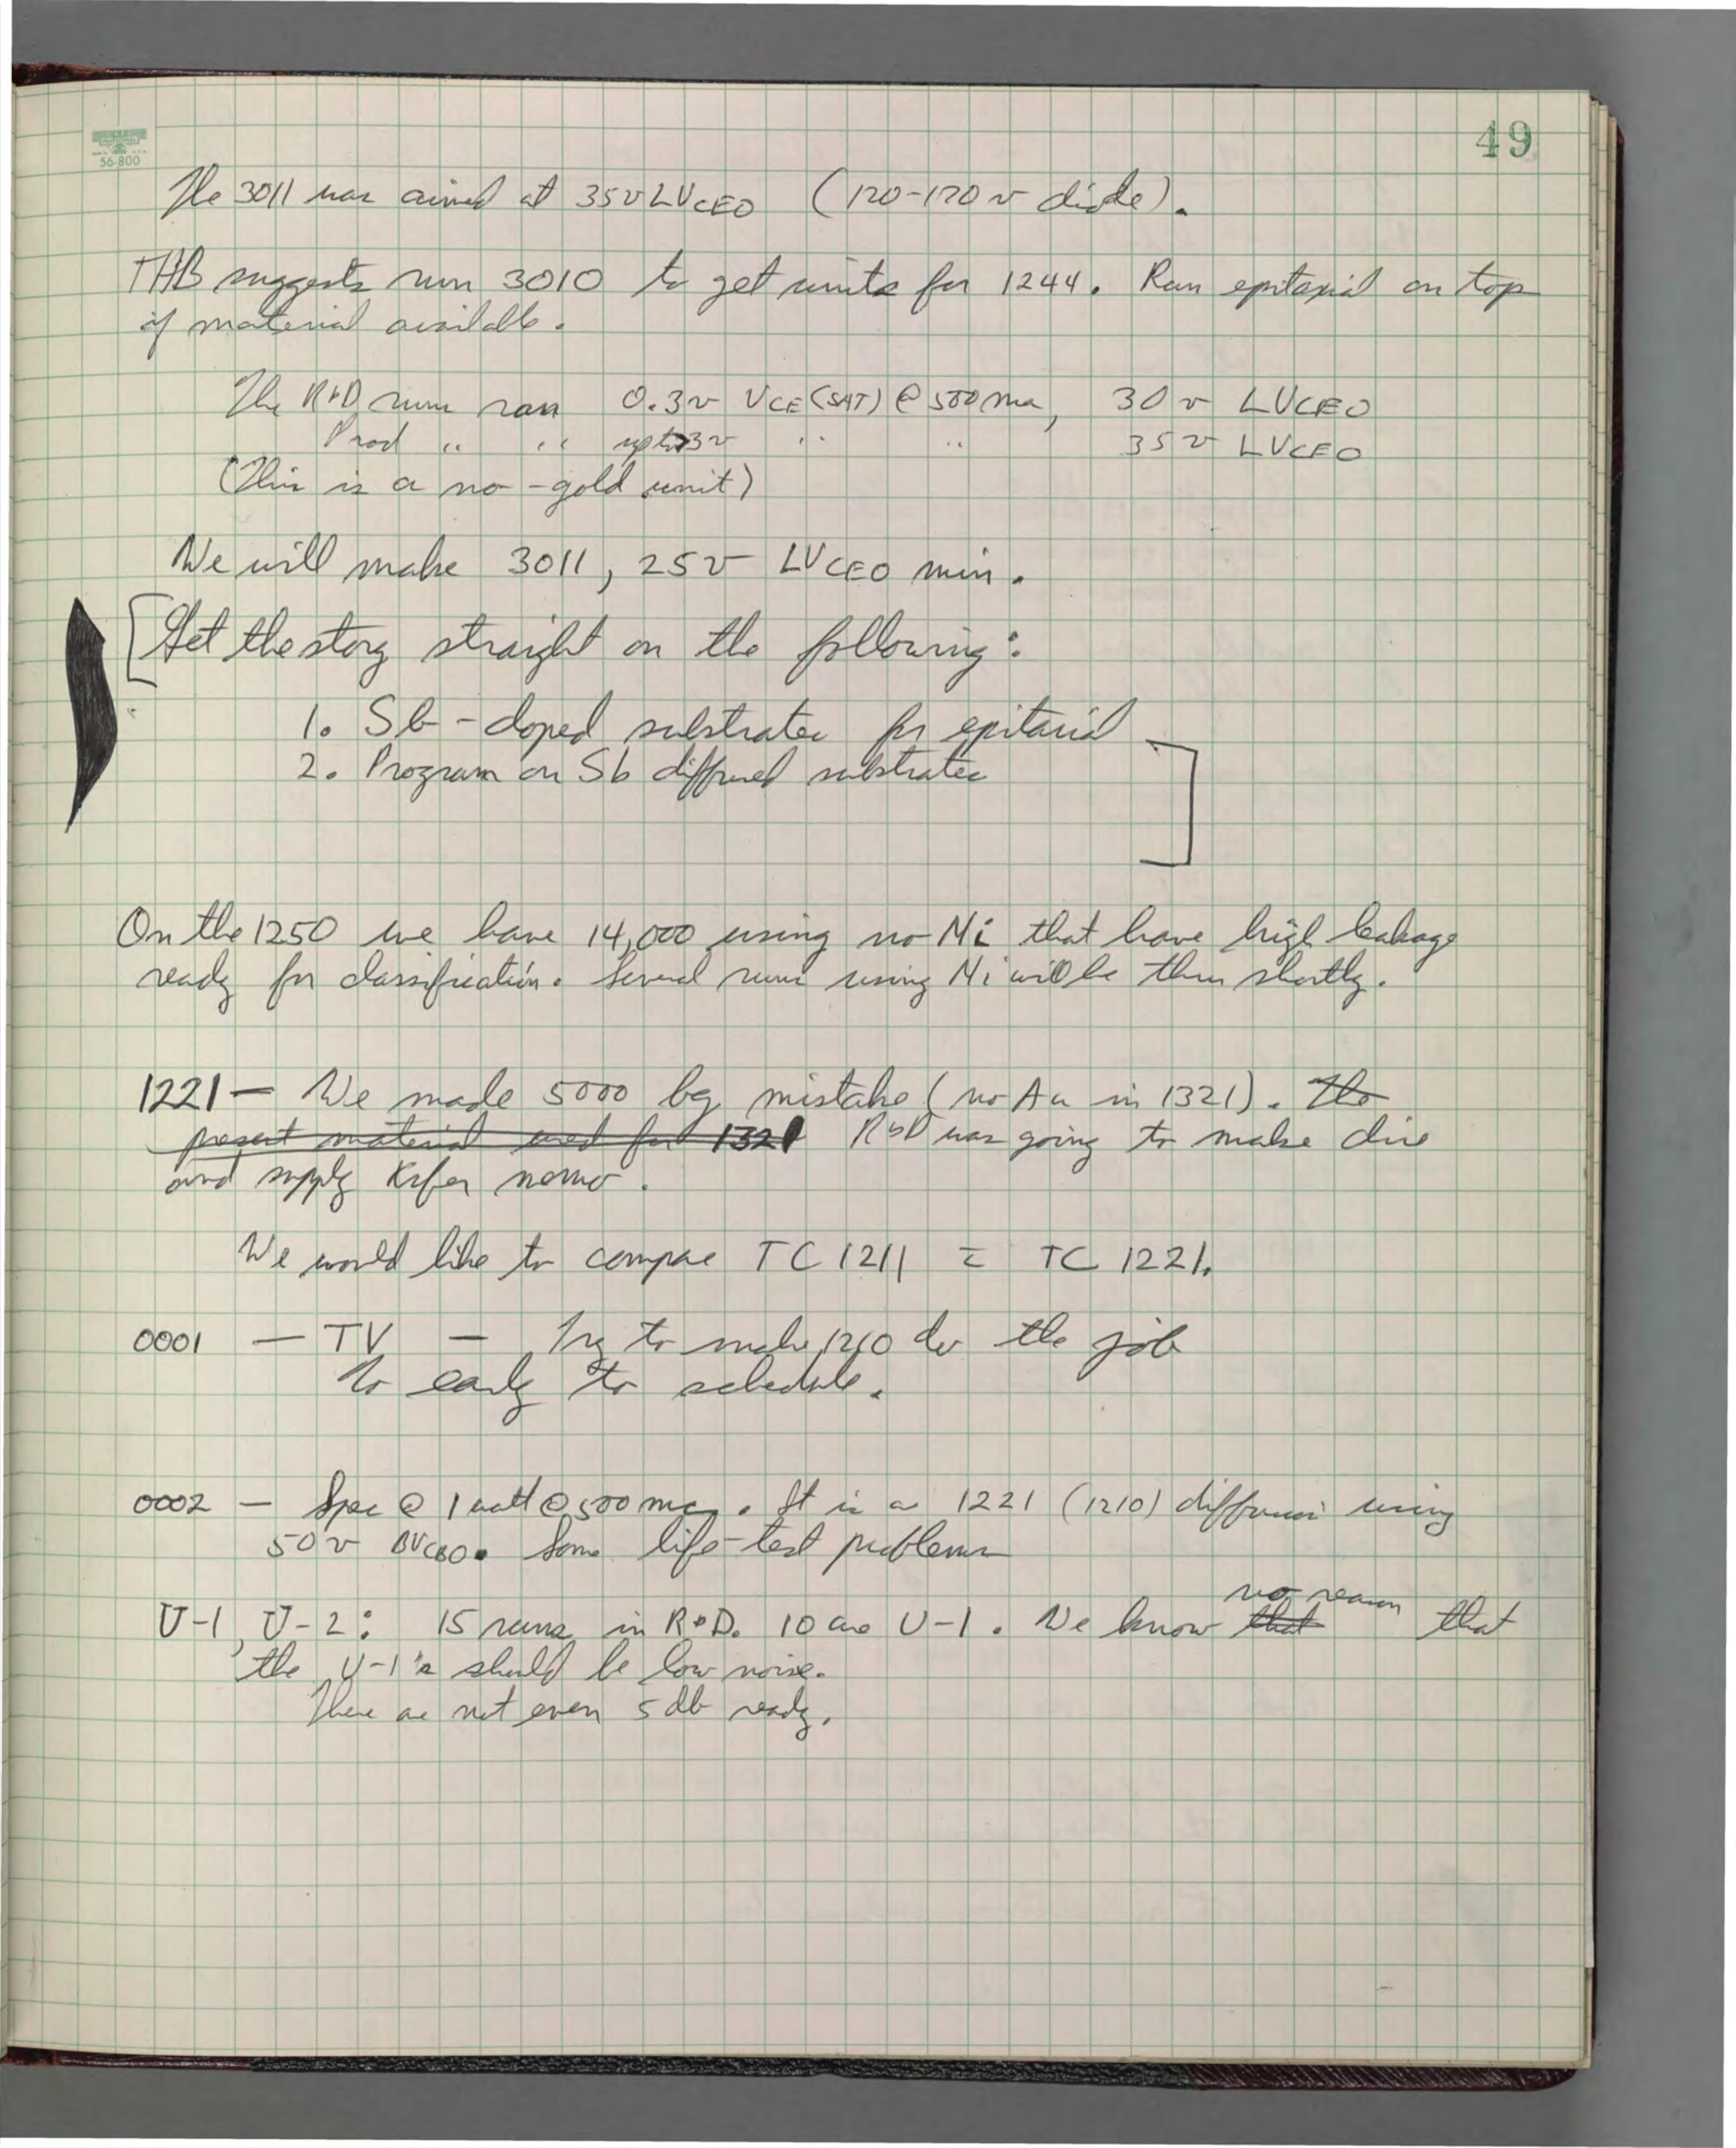 49
NATIONAL
56-800
The 3011 was aimed at 35v LVCEO (120-170 v diode).
THB suggests run 3010 to get units for 1244. Run epitaxial on top
of material available.
The R&D runs ran 0.3v VCE(SAT) @ 500 ma, 30 v LVCEO
Prod " " up to 3v " " 35v LVCEO
(This is a no-gold unit)
We will make 3011, 25v LVCEO min.
[Get the story straight on the following:
1. Sb-doped substrates for epitaxial
2. Program on Sb diffused substrates ]
On the 1250 we have 14,000 using no Ni that have high leakage
ready for classification. Several runs using Ni will be thru shortly.
1221 — We made 5000 by mistake (no Au in 1321). The
present material used for 1321 R&D was going to make dice
and supply
We would like to compare TC 1211 c̄ TC 1221.
0001 — TV — Try to make 1210 do the job
To early to schedule.
0002 — Spec @ 1 watt @ 500 mc. It is a 1221 (1210) diffusion using
50v BVCBO. Some life-test problems
no reason
U-1, U-2: 15 runs in R&D. 10 are U-1. We know that that
the U-1's should be low noise.
There are not even 5 db ready.